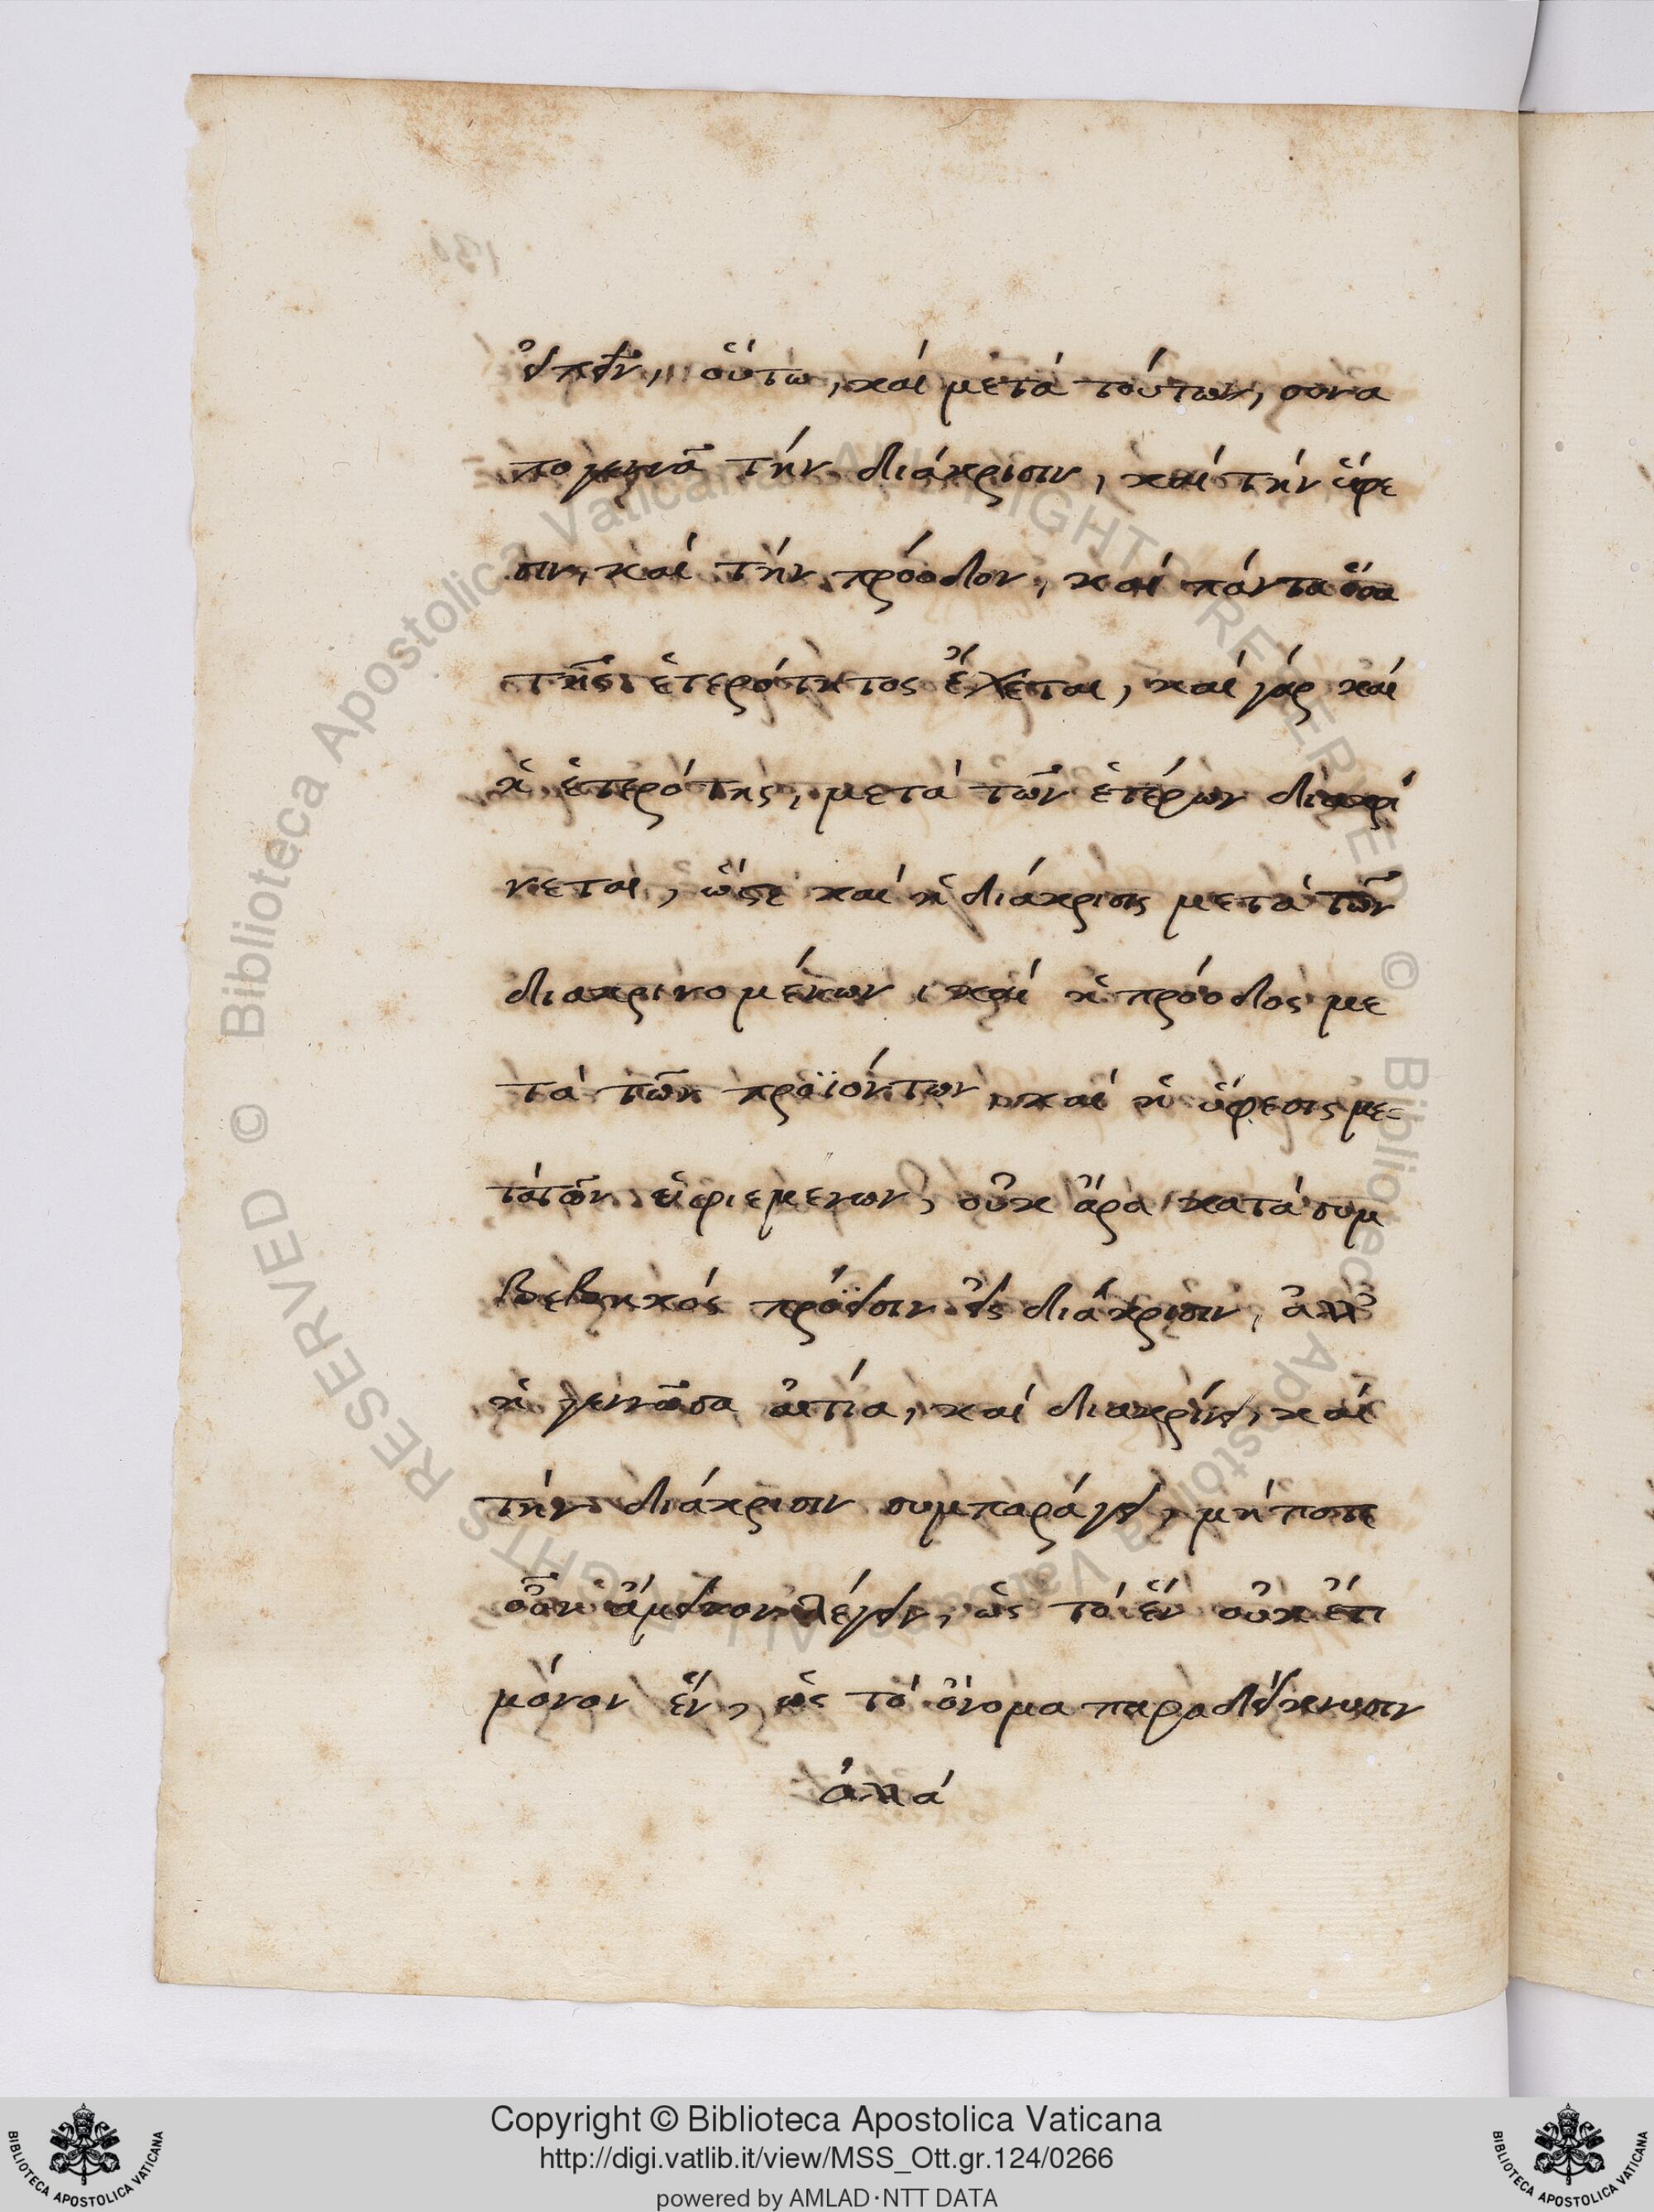 εἰπεῖν, οὕτω, καί μετά τούτων, συνα
πογεννᾶ τήν διάκρισιν, καί τήν ὕφε
σιν, καί τήν πρόοδον, καί πάντα ὅσα
τῆς ἑτερότητος ἔχεται, καί γάρ καί
ἡ ἑτερότης, μετά τῶν ἑτέρων διακρί
νεται, ὥστε καί ἡ διάκρισις μετά τῶν
διακρινομένων, καί ἡ πρόοδος με
τά τῶν προϊόντων, καί ἡ ὕφεσις με-
τά τῶν ὑφιεμενων, οὐκ ἄρα κατά συμ
βεβηκός πρόεισιν εἰς διάκρισιν, ἀλλ'
ἡ γεννῶσα αἰτία, καί διακρίνει, καί
τήν διάκρισιν συμπαράγει, μή ποτε
οὖν ἄμεινον λέγειν, ὡς τό ἕν οὐκ ἔτι
μόνον ἕν, ὡς τό ὄνομα παραδείκνυσιν
ἀλλά
Copyright © Biblioteca Apostolica Vaticana
http://digi.vatlib.it/view/MSS_Ott.gr.124/0266
powered by AMLAD·NTT DATA
BIBLIOTECA APOSTOLICA VATICANA
BIBLIOTECA APOSTOLICA VATICANA
© Biblioteca Apostolica Vaticana ALL RIGHTS RESERVED
© Biblioteca Apostolica Vaticana ALL RIGHTS RESERVED